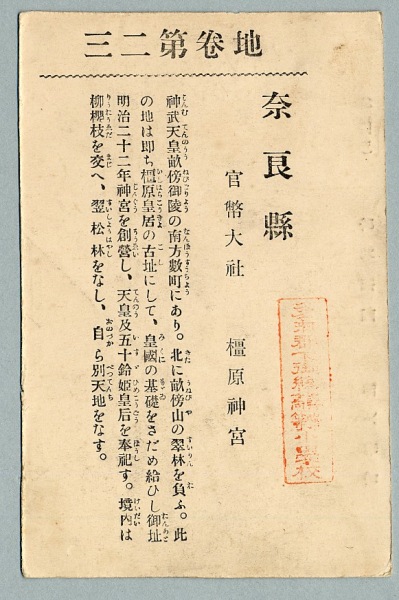 地卷第二三
奈良縣
官幣大社　橿原神宮
神武天皇畝傍御陵の南方數町にあり。北に畝傍山の翠林を負ふ。此
の地は即ち橿原皇居の古址にして、皇國の基礎をさだめ給ひし御址
明治二十二年神宮を創營し、天皇及五十鈴姫皇后を奉祀す。境内は
柳櫻枝を交へ、翠松林をなし、自ら別天地をなす。